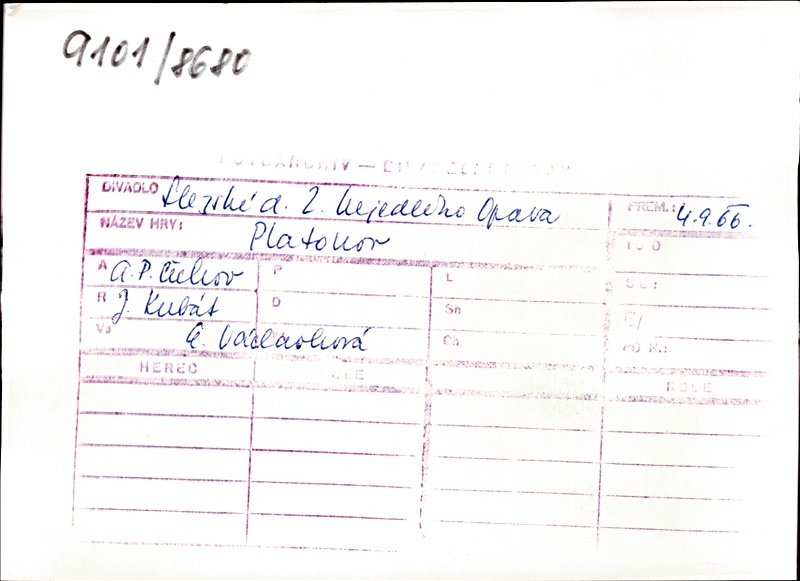 9101/8680
FOTOARCHIV — DIVADELNÍ
DIVADLO Slezské d. Z. Nejedlého Opava PREM.: 4.9.66.
NÁZEV HRY: Platonov
A A.P. Čechov P L
R J. Kubát D Sn
G. Václavková
HEREC ROLE